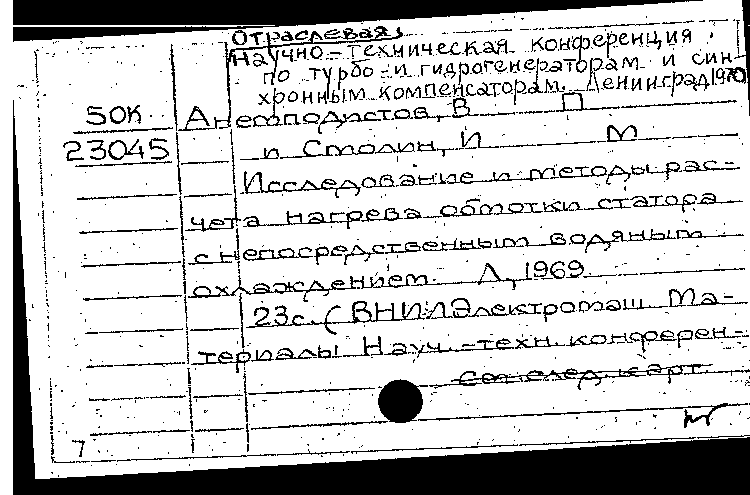 Отраслевая
Научно-техническая конференция
по турбо- и гидрогенераторам и син-
хронным компенсаторам. Ленинград 1970
50К Анемподистов, В П
23045 и Столин, И М
Исследование и методы рас-
чета нагрева обмотки статора
с непосредственным водяным
охлаждением. Л, 1969
23с. (ВНИИЭлектромаш. Ма-
териалы Науч.-техн. конферен-
См. след. карт.
7